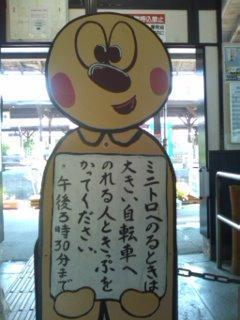 ミニトロへのるときは
大きい自転車へ
のれる人ときっぷを
かってください。
・午後3時30分まで